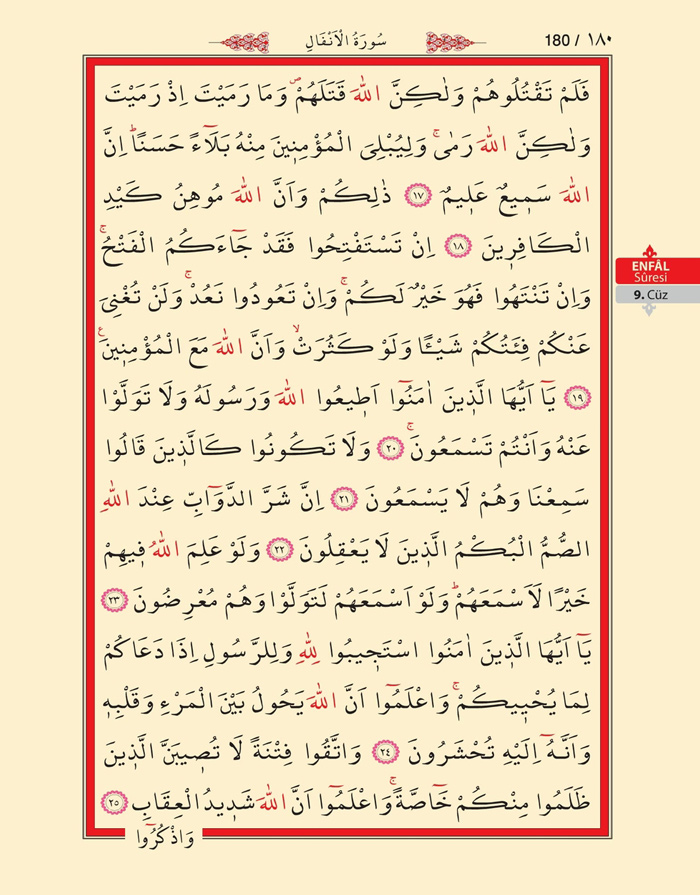 180 / ١٨٠
سُورَةُ الْاَنْفَالِ
فَلَمْ تَقْتُلُوهُمْ وَلٰكِنَّ اللّٰهَ قَتَلَهُمْۖ وَمَا رَمَيْتَ اِذْ رَمَيْتَ
وَلٰكِنَّ اللّٰهَ رَمٰىۚ وَلِيُبْلِيَ الْمُؤْمِنٖينَ مِنْهُ بَلَٓاءً حَسَنًاؕ اِنَّ
اللّٰهَ سَمٖيعٌ عَلٖيمٌ ﴿١٧﴾ ذٰلِكُمْ وَاَنَّ اللّٰهَ مُوهِنُ كَيْدِ
الْكَافِرٖينَ ﴿١٨﴾ اِنْ تَسْتَفْتِحُوا فَقَدْ جَٓاءَكُمُ الْفَتْحُۚ
وَاِنْ تَنْتَهُوا فَهُوَ خَيْرٌ لَكُمْۚ وَاِنْ تَعُودُوا نَعُدْۚ وَلَنْ تُغْنِيَ
عَنْكُمْ فِئَتُكُمْ شَيْـًٔا وَلَوْ كَثُرَتْۙ وَاَنَّ اللّٰهَ مَعَ الْمُؤْمِنٖينَࣖ
﴿١٩﴾ يَٓا اَيُّهَا الَّذٖينَ اٰمَنُٓوا اَطٖيعُوا اللّٰهَ وَرَسُولَهُ وَلَا تَوَلَّوْا
عَنْهُ وَاَنْتُمْ تَسْمَعُونَۚ ﴿٢٠﴾ وَلَا تَكُونُوا كَالَّذٖينَ قَالُوا
سَمِعْنَا وَهُمْ لَا يَسْمَعُونَ ﴿٢١﴾ اِنَّ شَرَّ الدَّوَٓابِّ عِنْدَ اللّٰهِ
الصُّمُّ الْبُكْمُ الَّذٖينَ لَا يَعْقِلُونَ ﴿٢٢﴾ وَلَوْ عَلِمَ اللّٰهُ فٖيهِمْ
خَيْرًا لَاَسْمَعَهُمْؕ وَلَوْ اَسْمَعَهُمْ لَتَوَلَّوْا وَهُمْ مُعْرِضُونَ ﴿٢٣﴾
يَٓا اَيُّهَا الَّذٖينَ اٰمَنُوا اسْتَجٖيبُوا لِلّٰهِ وَلِلرَّسُولِ اِذَا دَعَاكُمْ
لِمَا يُحْيٖيكُمْۚ وَاعْلَمُٓوا اَنَّ اللّٰهَ يَحُولُ بَيْنَ الْمَرْءِ وَقَلْبِهٖ
وَاَنَّهُٓ اِلَيْهِ تُحْشَرُونَ ﴿٢٤﴾ وَاتَّقُوا فِتْنَةً لَا تُصٖيبَنَّ الَّذٖينَ
ظَلَمُوا مِنْكُمْ خَٓاصَّةًۚ وَاعْلَمُٓوا اَنَّ اللّٰهَ شَدٖيدُ الْعِقَابِ ﴿٢٥﴾
وَاذْكُرُٓوا
ENFÂL
Sûresi
9. Cüz